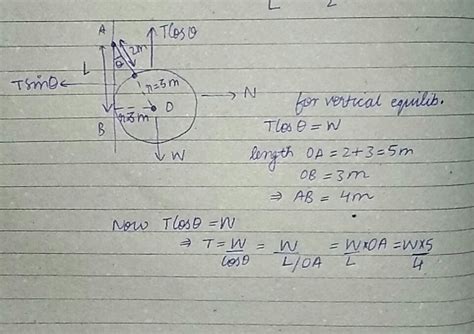 L 2
A
Tcosθ
2m
θ
L
r=3m
TsinθN
B
r=3m
O
W
for vertical equilib.
Tcosθ = W
length OA = 2+3 = 5m
OB = 3m
⇒ AB = 4m
Now Tcosθ = W
⇒ T = W/cosθ = W/L/OA = W/L × OA = W×5/4